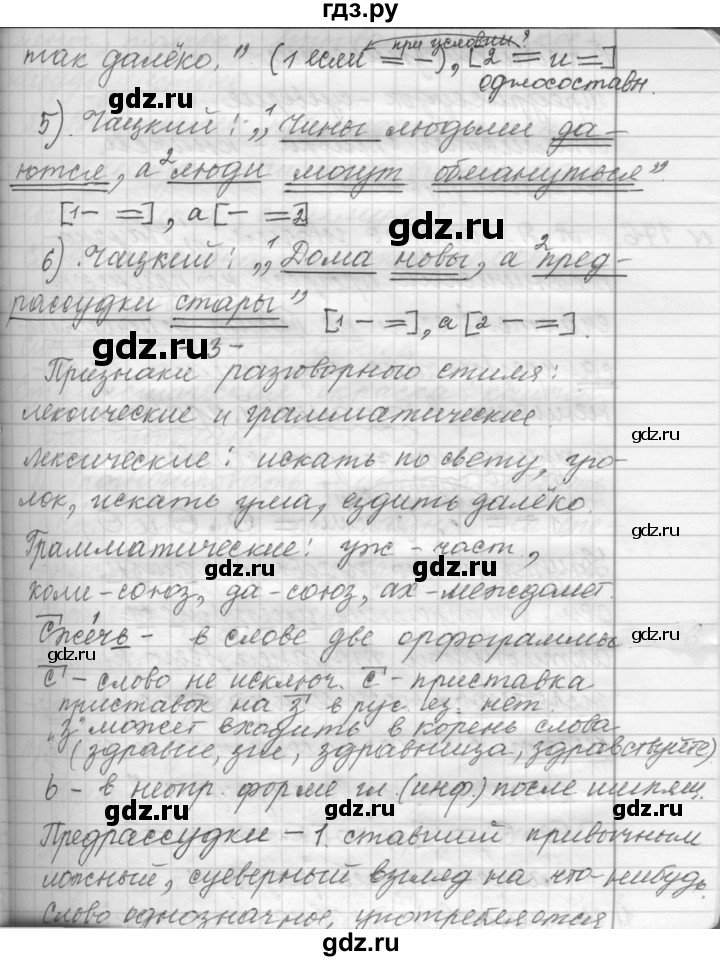 гдз.ру
так далёко." (1 если = -), [2 = и =]
при условии?
односоставн.
5). Чацкий: „1Чины людьми да-
ются, а 2люди могут обмануться".
[1 - =], а [- = 2]
gdz.ru
6). Чацкий: „1Дома новы, а 2пред-
рассудки стары"
[1 - =], а [2 - =].
gdz.ru
- 3 -
Признаки разговорного стиля:
лексические и грамматические.
gdz.ru
Лексические: искать по свету, уго-
лок, искать ума, ездить далёко.
gdz.ru
Грамматические: уж - част.,
gdz.ru gdz.ru
коли - союз, да - союз, ах - междомет.
Сжечь - в слове две орфограммы.
gdz.ru
с - слово не исключ. с - приставка
приставок на з в рус. яз. нет.
„З" может входить в корень слова
(здравие, зге, здравница, здравствуйте)
gdz.ru
ь - в неопр. форме гл. (инф.) после шипящ.
gdz.ru gdz.ru
Предрассудки - 1. ставший привычным
ложный, суеверный взгляд на что-нибудь.
gdz.ru
Слово однозначное, употребляются
gdz.ru